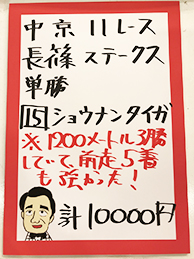 中京11レース
長篠ステークス
単勝
15 ショウナンタイガ
※1200メートル3勝
していて前走5着
も強かった!
計10000円